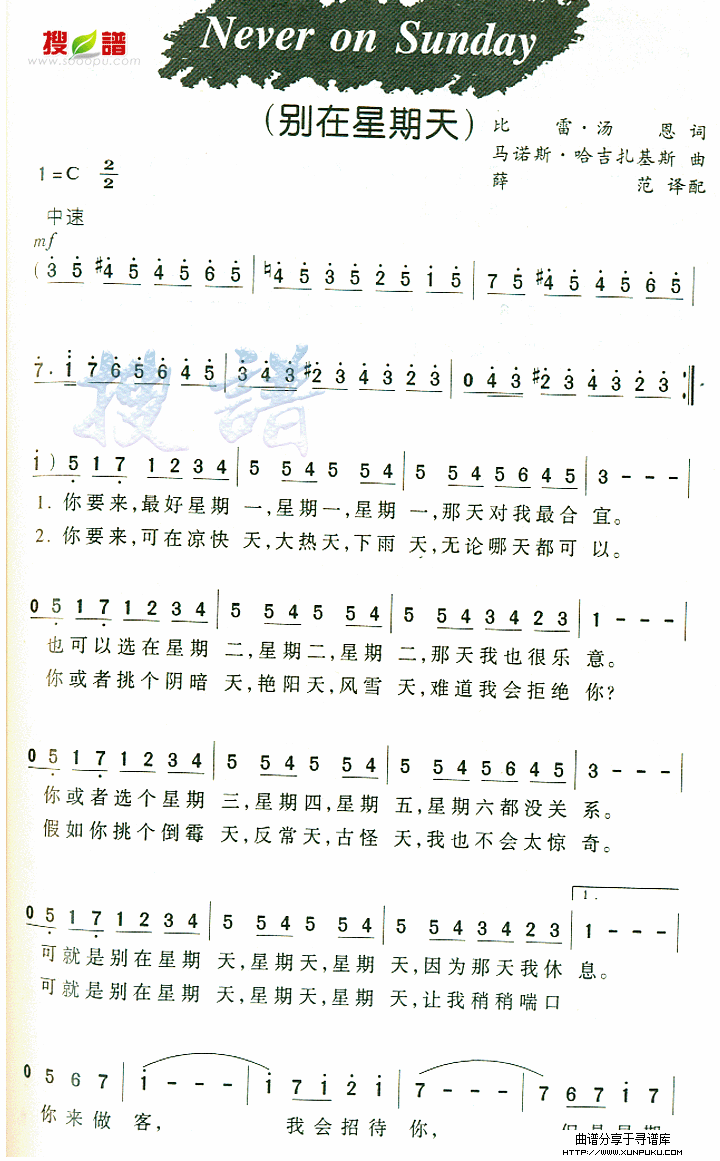 搜谱
www.sooopu.com
Never on Sunday
(别在星期天)
比雷·汤恩 词
马诺斯·哈吉扎基斯 曲
薛范 译配
1=C 2/2
中速
mf
(3 5 #4 5 4 5 6 5 | ♮4 5 3 5 2 5 1 5 | 7 5 #4 5 4 5 6 5 |
7. 1 7 6 5 6 4 5 | 3 4 3 #2 3 4 3 2 3 | 0 4 3 #2 3 4 3 2 3 :||
1) 5 1 7 1 2 3 4 | 5 5 4 5 5 4 | 5 5 4 5 6 4 5 | 3 - - - |
1. 你要来,最好星期 一,星期一,星期 一,那天对我最合 宜。
2. 你要来,可在凉快 天,大热天,下雨 天,无论哪天都可 以。
0 5 1 7 1 2 3 4 | 5 5 4 5 5 4 | 5 5 4 3 4 2 3 | 1 - - - |
也可以选在星期 二,星期二,星期 二,那天我也很乐 意。
你或者挑个阴暗 天,艳阳天,风雪 天,难道我会拒绝 你?
0 5 1 7 1 2 3 4 | 5 5 4 5 5 4 | 5 5 4 5 6 4 5 | 3 - - - |
你或者选个星期 三,星期四,星期 五,星期六都没关 系。
假如你挑个倒霉 天,反常天,古怪 天,我也不会太惊 奇。
1.
0 5 1 7 1 2 3 4 | 5 5 4 5 5 4 | 5 5 4 3 4 2 3 | 1 - - - |
可就是别在星期 天,星期天,星期 天,因为那天我休 息。
可就是别在星期 天,星期天,星期 天,让我稍稍喘口
0 5 6 7 | 1 - - - | 1 7 1 2 1 | 7 - - - | 7 6 7 1 7 |
你来做 客, 我会招待 你,
曲谱分享于寻谱库
HTTP://WWW.XUNPUKU.COM